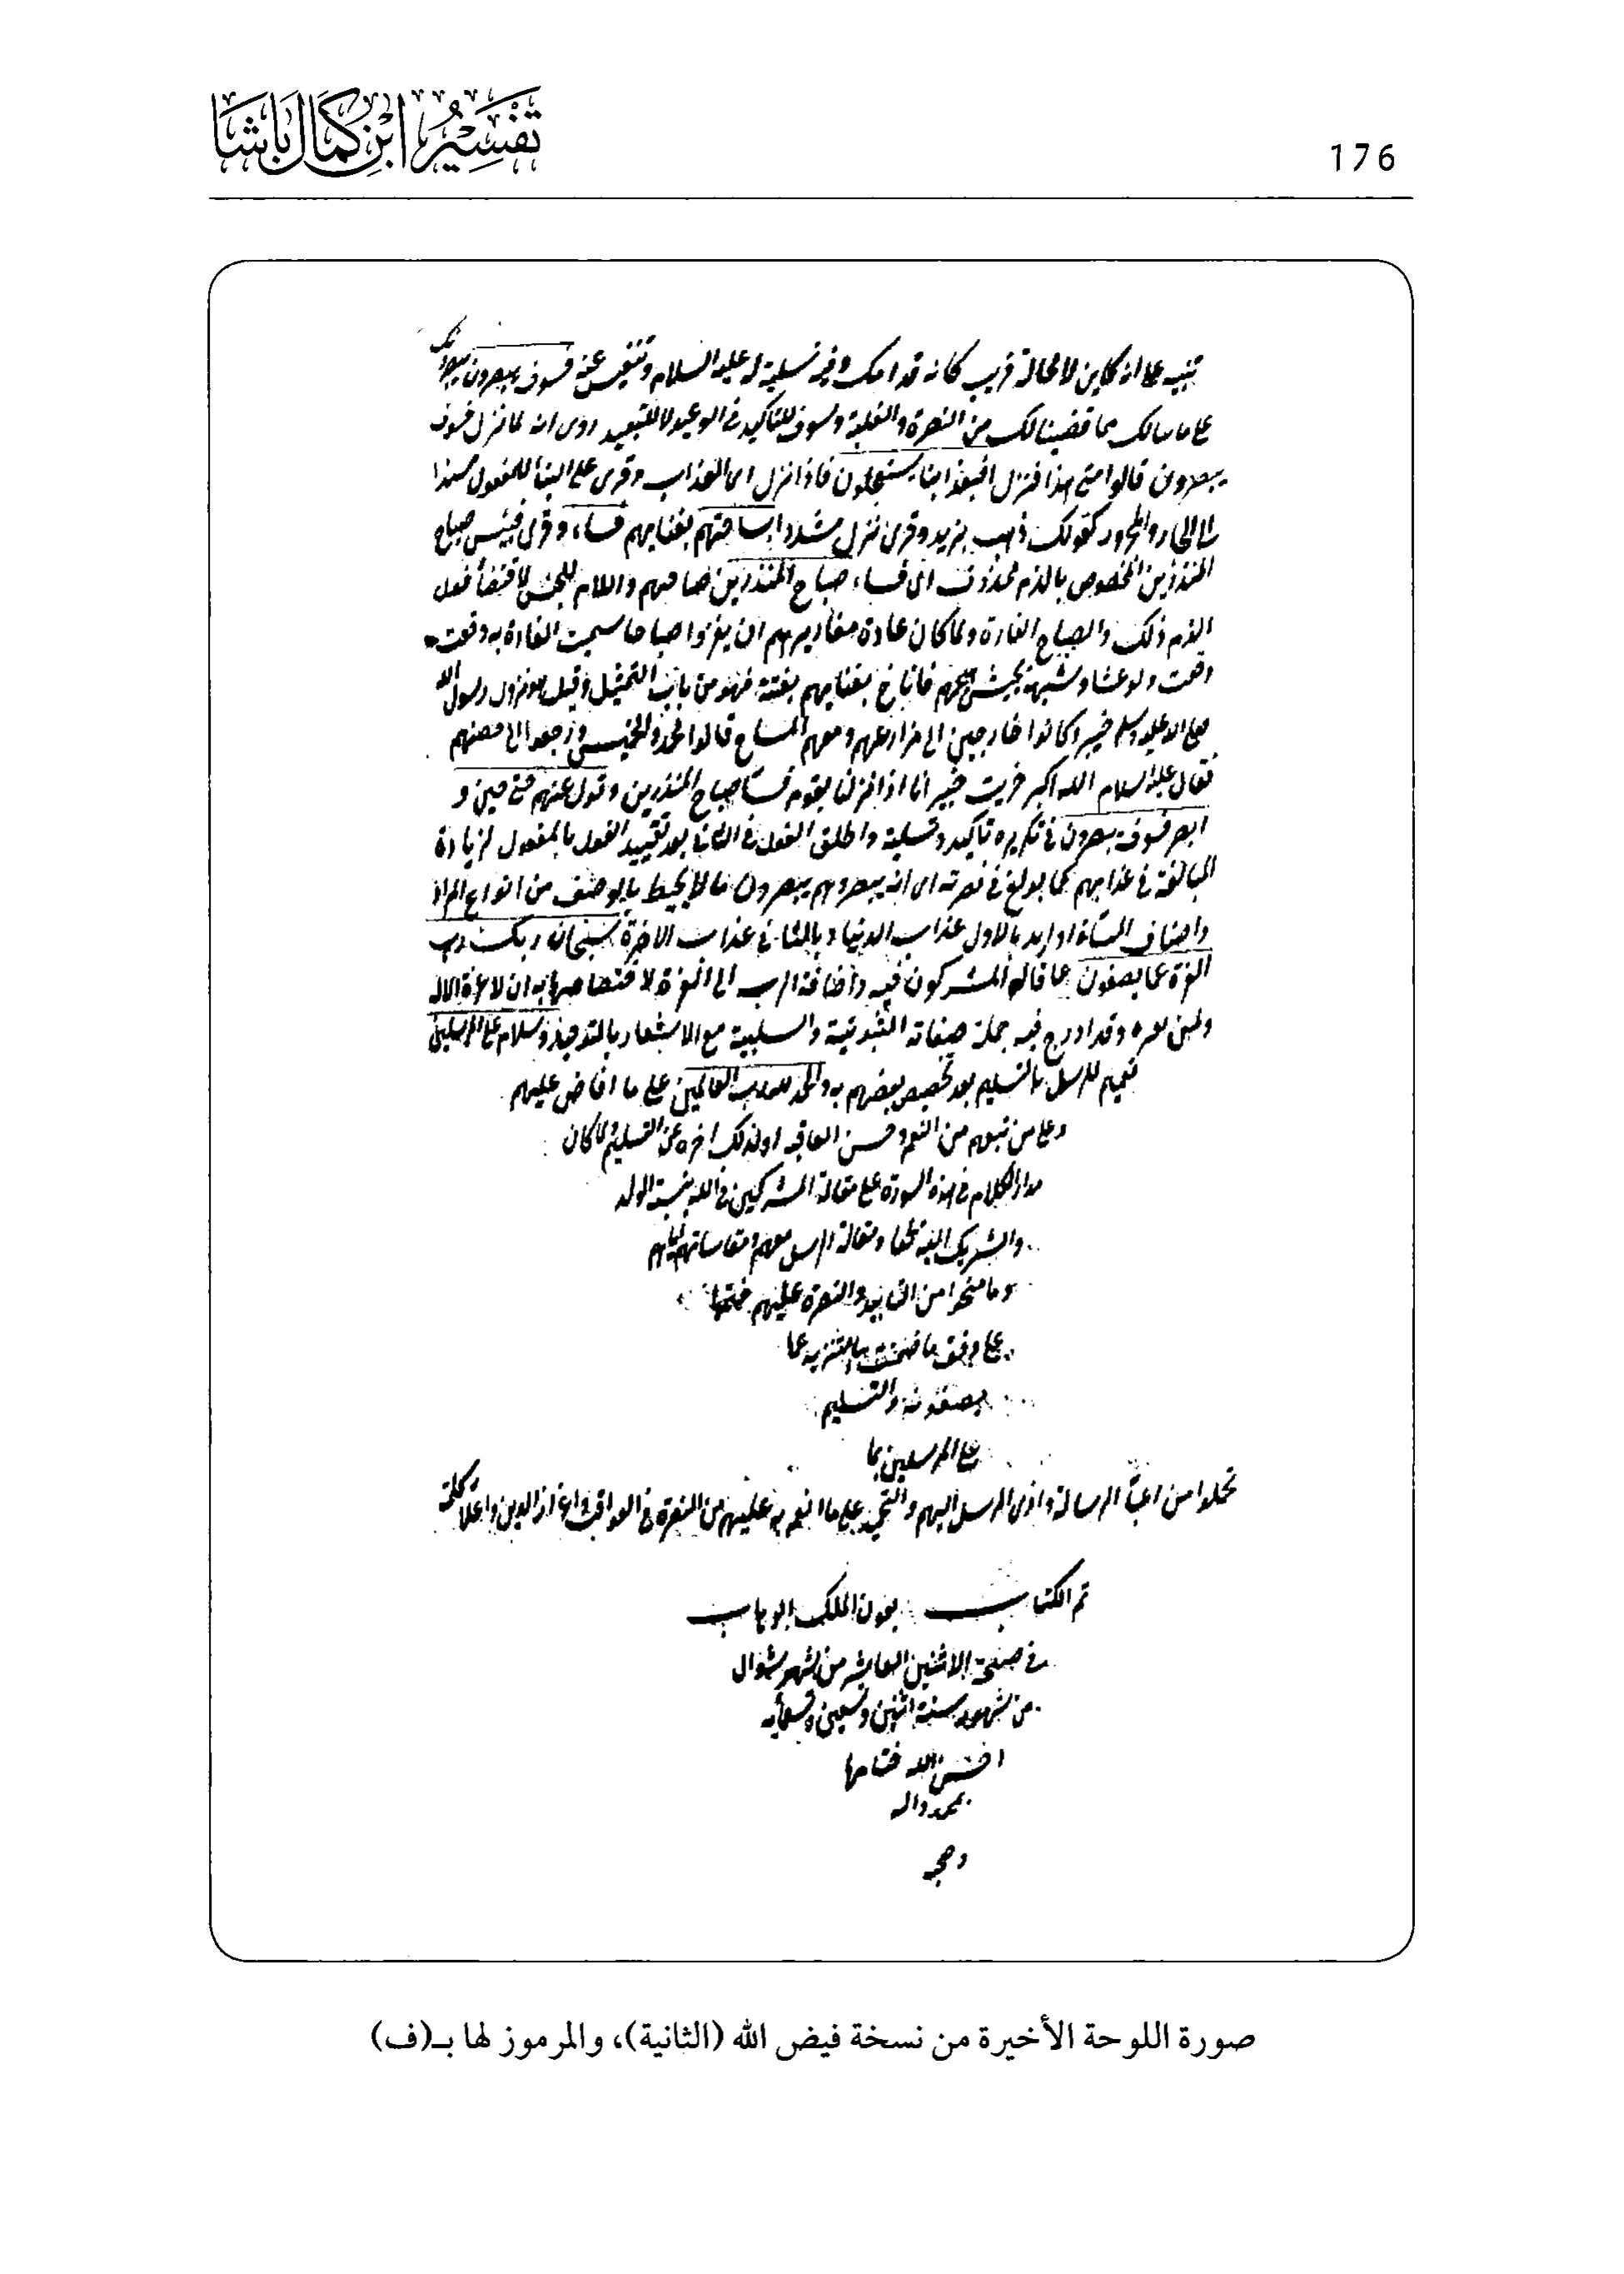 تفسير ابن كمال باشا
176
تنبيه على انه كاين لا محالة قريب كانه قدامك وفيه تسلية له عليه السلام وتنفيس عنه فسوف يبصرون
مما قضينا لك من النصرة والغلبة وسوف للتاكيد في الوعيد لا للتبعيد روى انه لما نزل فسوف
يبصرون قالوا متى هذا فنزل افبعذابنا يستعجلون فاذا نزل اى العذاب وقرى على البنا للمفعول مسندا
الى الجار والمجرور كقولك ذهب بزيد وقرى نزل مشددا بساحتهم بفنايهم فساء وقرى فبئس صباح
المنذرين المخصوص بالذم محذوف اى فساء صباح المنذرين صباحهم واللام للجنس لاقتضا فعل
الذم ذلك والصباح الغارة ولما كان عادة مغاويرهم ان يغزوا صباحا سميت الغارة به وقعت
وقعت ولو عشاء وشبهه بجيش هجم فاناخ بفنايهم بغتة فهو من باب التمثيل وقيل هو نزول رسول الله
صلى الله عليه وسلم خيبر وكانوا خارجين الى مزارعهم ومعهم المساح قالوا محمد والخميس ورجعوا الى حصنهم
فقال عليه السلام الله اكبر خربت خيبر انا اذا نزلنا بقوم فساء صباح المنذرين وتول عنهم حتى حين و
ابصر فسوف يبصرون في تكريره تاكيد وتسلية واطلق الفعل في الثاني بعد تقييد الفعل بالمفعول لزيادة
المبالغة في عذابهم كما بولغ في نصرته اى انه يبصر وهم يبصرون ما لا يحيط به الوصف من انواع
واصناف المساءة او اريد بالاول عذاب الدنيا وبالثاني عذاب الاخرة سبحان ربك رب
العزة عما يصفون عما قاله المشركون فيه واضافة الرب الى العزة لاختصاصها به ان لا عزة الا له
ولمن يعزه وقد ادرج فيه جملة صفاته الثبوتية والسلبية مع الاشعار بالتوحيد وسلام على المرسلين
تعميم للرسل بالتسليم بعد تخصيص بعضهم به والحمد لله رب العالمين على ما افاض عليهم
وعلى من تبعهم من النعم وحسن العاقبة ولذلك اخره عن التسليم ولما كان
مدار الكلام في هذه السورة على مقالة المشركين في الله بنسبة الولد
والشريك اليه ومقالة الرسل معهم ومقاساتهم
وما منحوا من التاييد والنصرة عليهم ختمها
على وفق ما ضمنت بالتنزيه عما
يصفونه والتسليم
على المرسلين بما
تحملوا من اعباء الرسالة واذى المرسل اليهم والتحميد على ما انعم به عليهم من النصرة في العواقب واعزاز الدين واعلاء كلمته
تم الكتاب بعون الملك الوهاب
في صبيحة الاثنين العاشر من شهر شوال
من شهور سنة اثنين وتسعين وتسعمايه
احسن الله ختامها
بمحمد واله
وصحبه
صورة اللوحة الأخيرة من نسخة فيض الله (الثانية)، والمرموز لها بـ(ف)